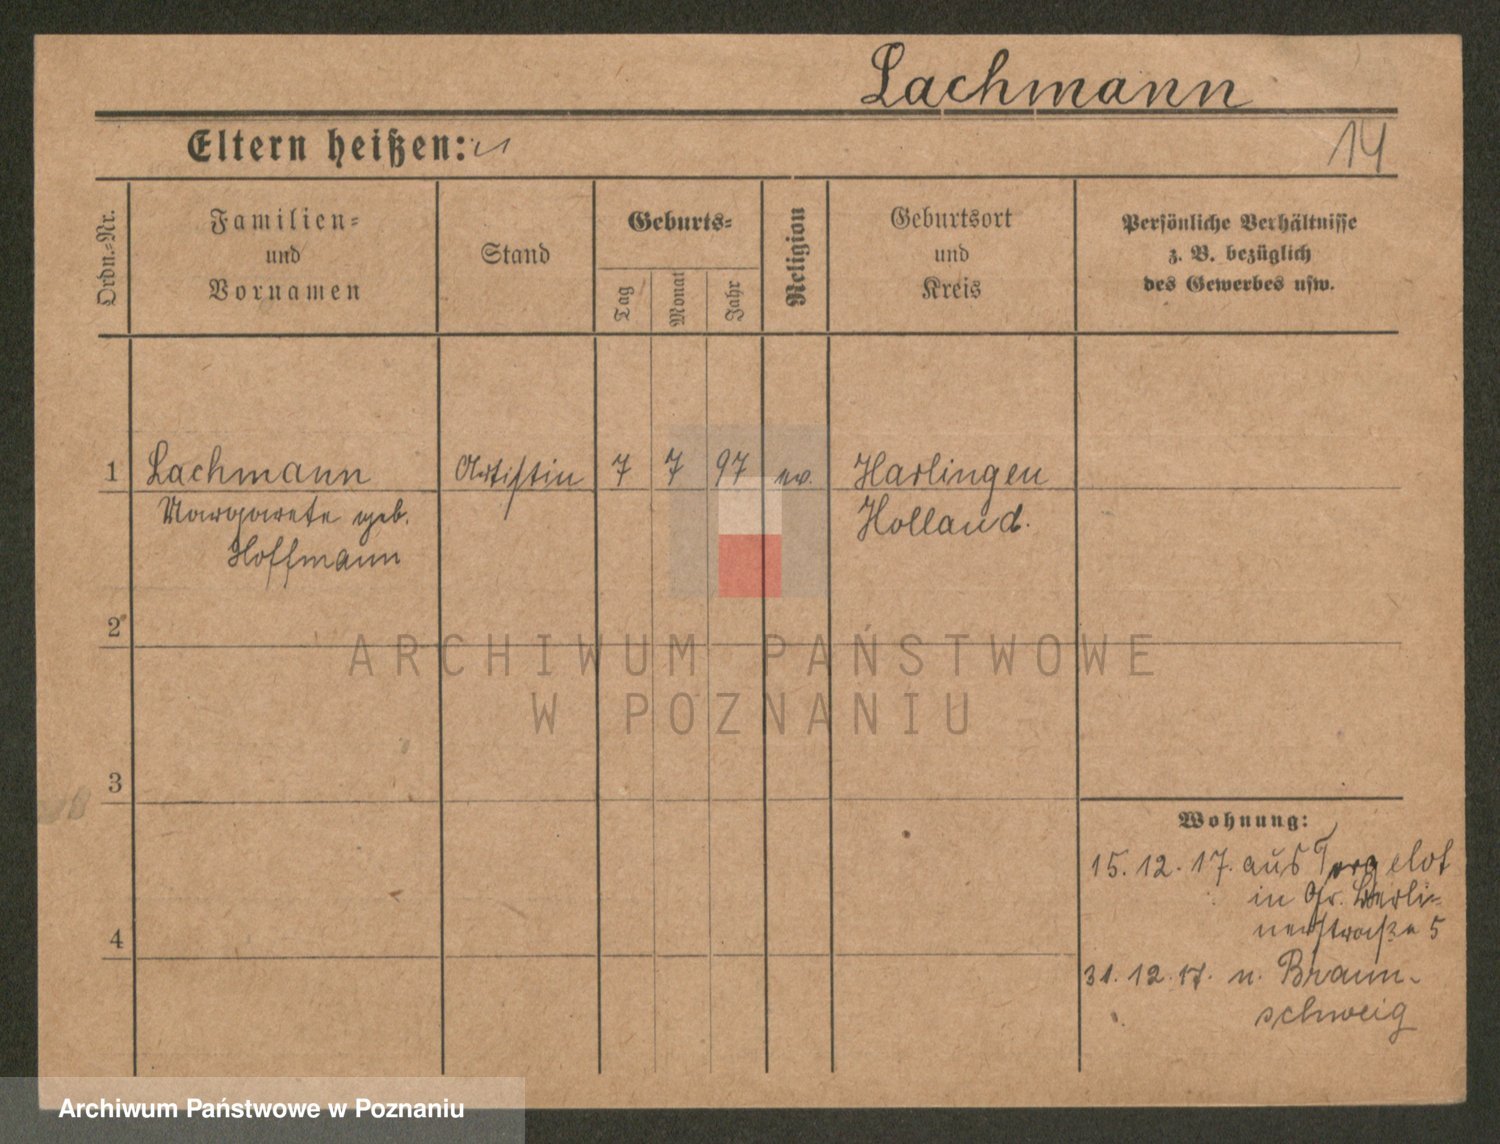 Lachmann
Eltern heißen:
14
Ordn.=Nr.
Familien=
und
Vornamen
Stand
Geburts=
Tag
Monat
Jahr
Religion
Geburtsort
und
Kreis
Persönliche Verhältnisse
z. B. bezüglich
des Gewerbes usw.
1 Lachmann Artistin 7 7 97 ev. Harlingen
Margarete geb. Holland.
Hoffmann
2
ARCHIWUM PAŃSTWOWE
W POZNANIU
3
Wohnung:
15.12.17. aus
in Gr. Berli-
nerstraße 5
4
31.12.17. n. Braun-
schweig
Archiwum Państwowe w Poznaniu